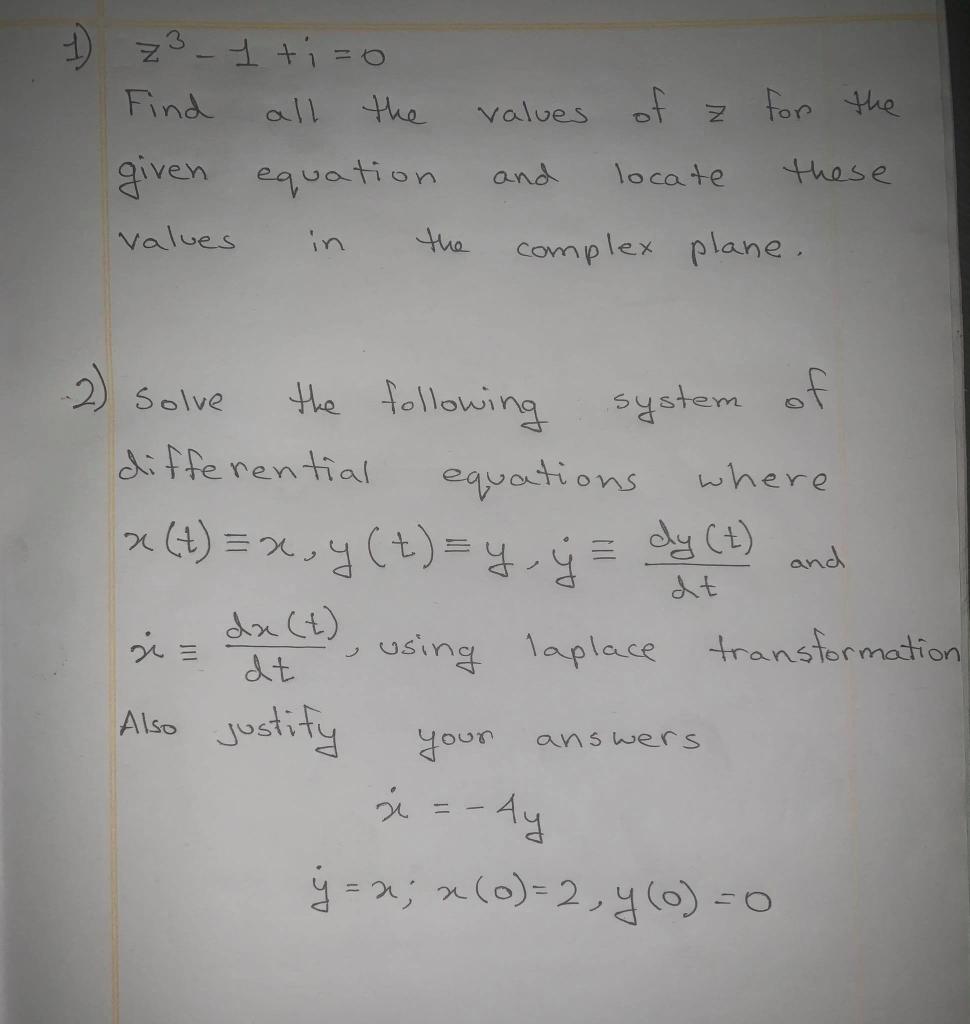 1) z³ - 1 + i = 0
Find all the values of z for the
given equation and locate these
values in the complex plane.
2) Solve the following system of
differential equations where
x(t) ≡ x, y(t) = y, ẏ ≡ dy(t)/dt and
ẋ ≡ dx(t)/dt, using laplace transformation
Also justify your answers
ẋ = -4y
ẏ = x; x(0) = 2, y(0) = 0